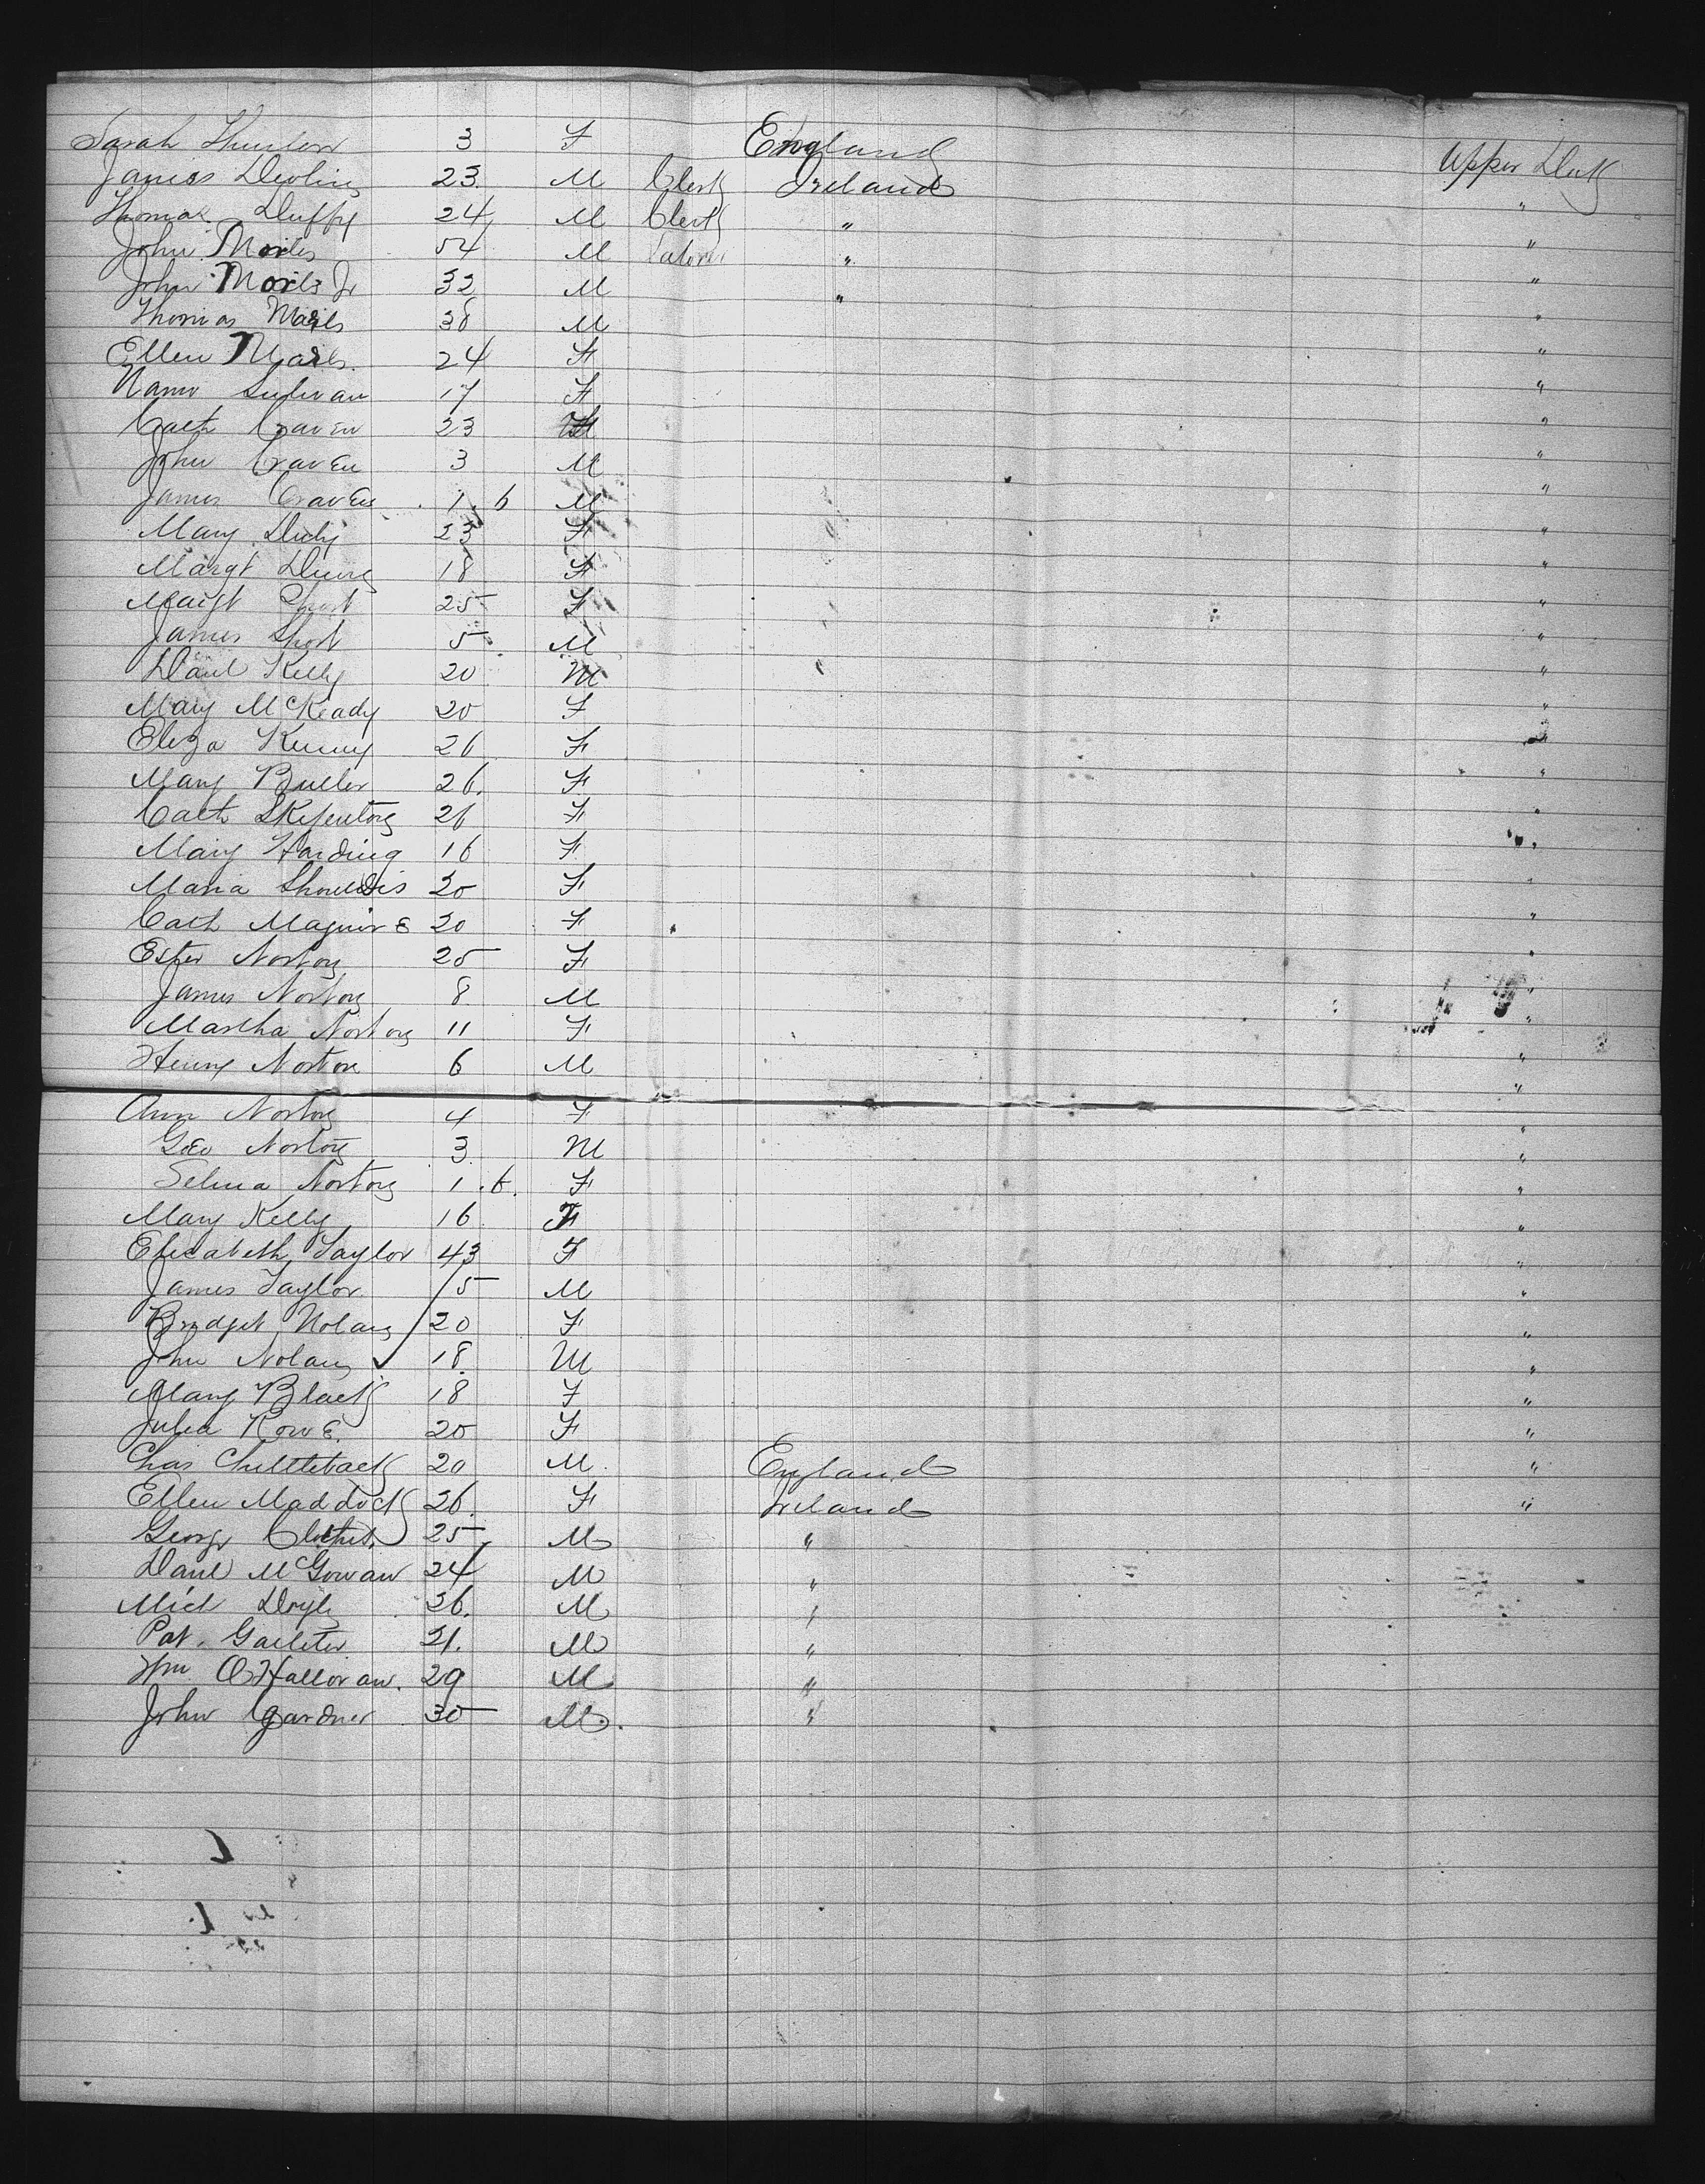 Sarah 3 F England Upper Deck
James Devlin 23 M Clerk Ireland "
Thomas Duffy 24 M Clerk " "
John Moriles 54 M Labor " "
John Moriles Jr 32 M " "
Thomas 38 M "
Ellen 24 F "
Sulivan 17 F "
Cath Craven 23 F "
John Craven 3 M "
James Craven 1.6 M "
Mary 23 F "
Margt Dunn 18 F "
Margt Short 25 F "
James Short 5 M "
Danl Kelly 20 M "
Mary McKeady 20 F "
Eliza Kenny 26 F "
Mary Butler 26 F "
Cath 26 F "
Mary Harding 16 F "
Maria Shouldis 20 F "
Cath Maguire 20 F "
Ester Norton 25 F "
James Norton 8 M "
Martha Norton 11 F "
Henry Norton 6 M "
Ann Norton 4 F "
Geo Norton 3 M "
Selina Norton 1.6. F "
Mary Kelly 16 F "
Elizabeth Taylor 43 F "
James Taylor 5 M "
Bridget Nolan 20 F "
John Nolan 18 M "
Mary Black 18 F "
Julia Rowe 20 F "
Chas 20 M England "
Ellen Maddock 26 F Ireland "
George 25 M "
Danl McGowan 24 M "
Mich Doyle 36 M "
Pat. 21. M "
Wm O'Halloran. 29 M "
John Gardner 30 M. "